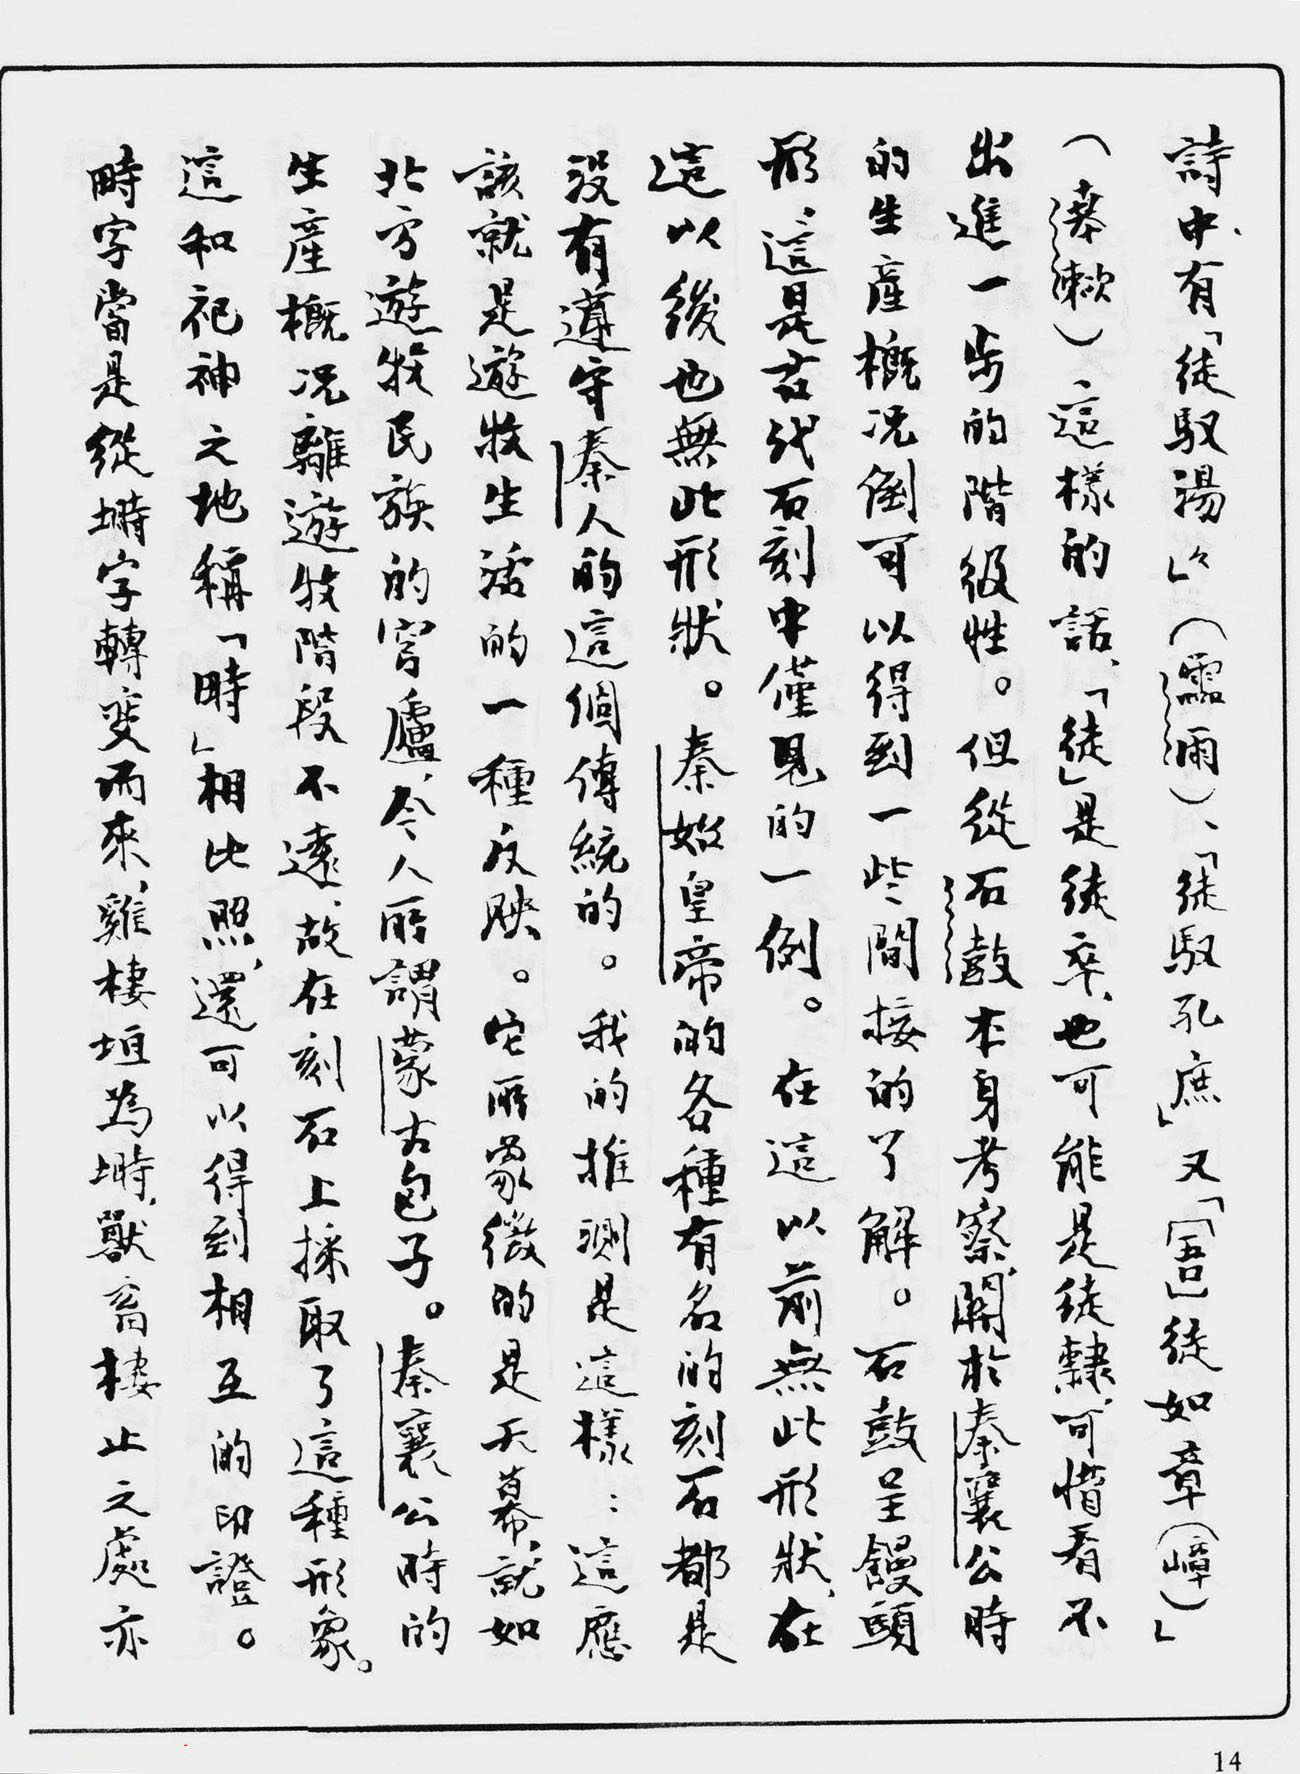 詩中、有「徒馭湯々」（霝雨）、「徒馭孔庶」又「［吾］徒如章（嶂）」
（𠦪欶）這樣的話、「徒」是徒卒、也可能是徒隸、可惜看不
出進一步的階級性。但從石鼓本身考察、關於秦襄公時
的生產概况倒可以得到一些間接的了解。石鼓呈饅頭
形、這是古代石刻中僅見的一例。在這以前無此形狀、在
這以後也無此形狀。秦始皇帝的各種有名的刻石都是
沒有遵守秦人的這個傳統的。我的推測是這樣：這應
該就是遊牧生活的一種反映。它所象徵的是天幕、就如
北方遊牧民族的穹廬、今人所謂蒙古包子。秦襄公時的
生產概况離遊牧階段不遠、故在刻石上採取了這種形象。
這和祀神之地稱「畤」相比照、還可以得到相互的印證。
畤字當是從塒字轉變而來、雞棲垣為塒、獸畜棲止之處亦
14